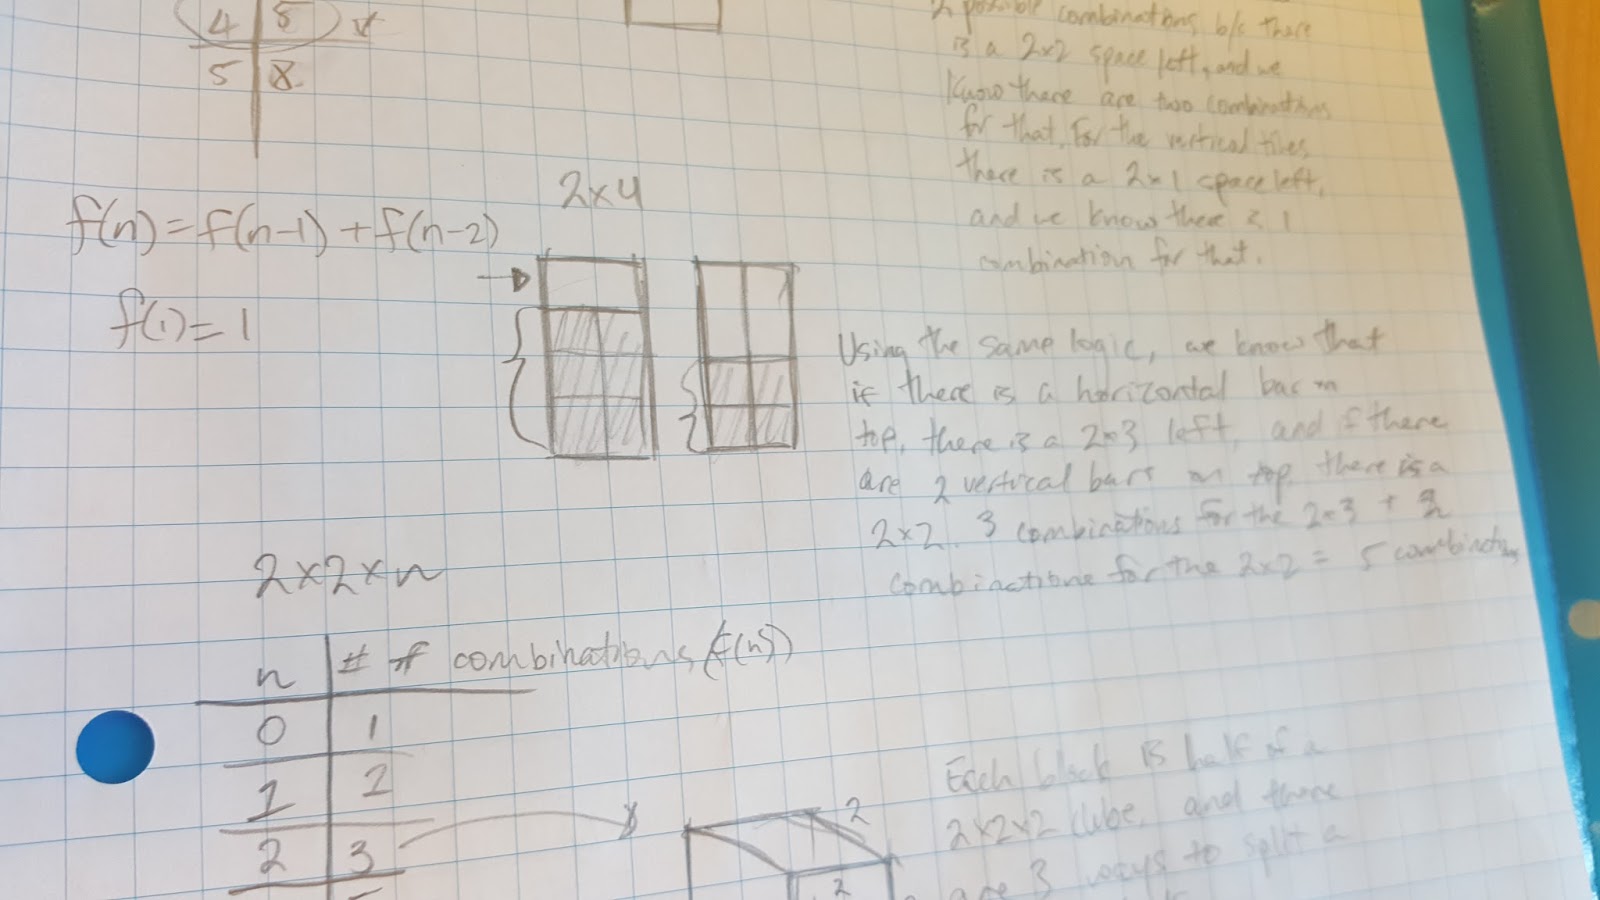 4 5
5 8
2 possible combinations b/c there
is a 2×2 space left, and we
know there are two combinations
for that. For the vertical tiles,
there is a 2×1 space left,
and we know there is 1
combination for that.
f(n) = f(n-1) + f(n-2)
f(1) = 1
2×4
Using the same logic, we know that
if there is a horizontal bar on
top, there is a 2×3 left, and if there
are 2 vertical bars on top there is a
2×2. 3 combinations for the 2×3 + 2
combinations for the 2×2 = 5 combinations
2×2×n
n # of combinations (f(n))
0 1
1 2
2 3
2
2
Each block is half of a
2×2×2 cube, and there
are 3 ways to split a